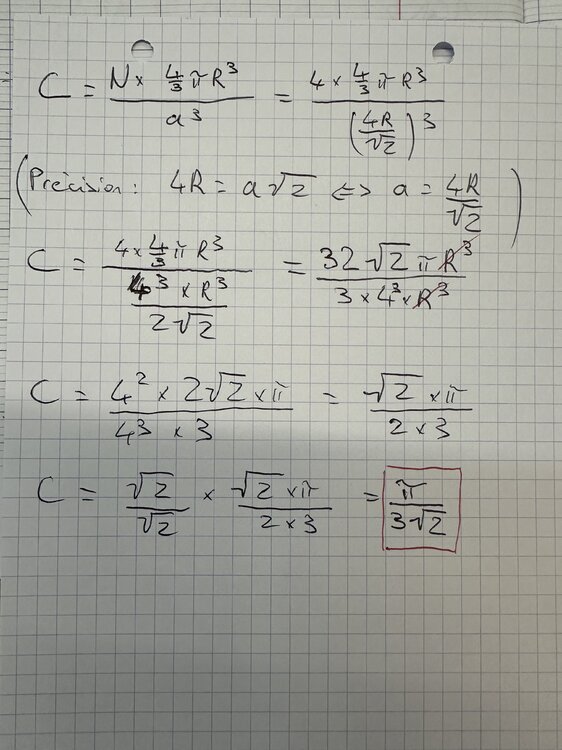 C = (N × 4/3 π R³) / a³ = (4 × 4/3 π R³) / (4R/√2)³
(Précision : 4R = a√2 ⇔ a = 4R/√2)
C = (4 × 4/3 π R³) / ((4³ × R³) / (2√2)) = (32√2 π R³) / (3 × 4³ × R³)
C = (4² × 2√2 × π) / (4³ × 3) = (√2 × π) / (2 × 3)
C = √2/√2 × (√2 × π) / (2 × 3) = π / (3√2)